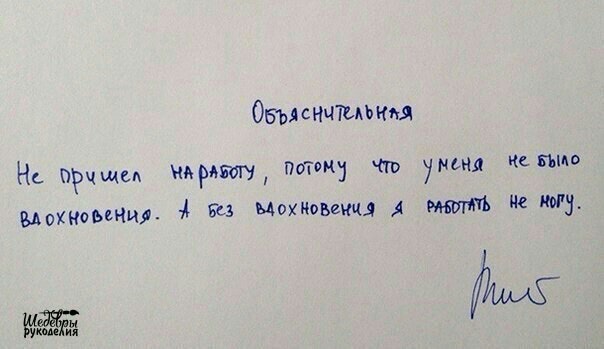 Объяснительная
Не пришел на работу, потому что у меня не было
вдохновения. А без вдохновения я работать не могу.
Шедевры
рукоделия